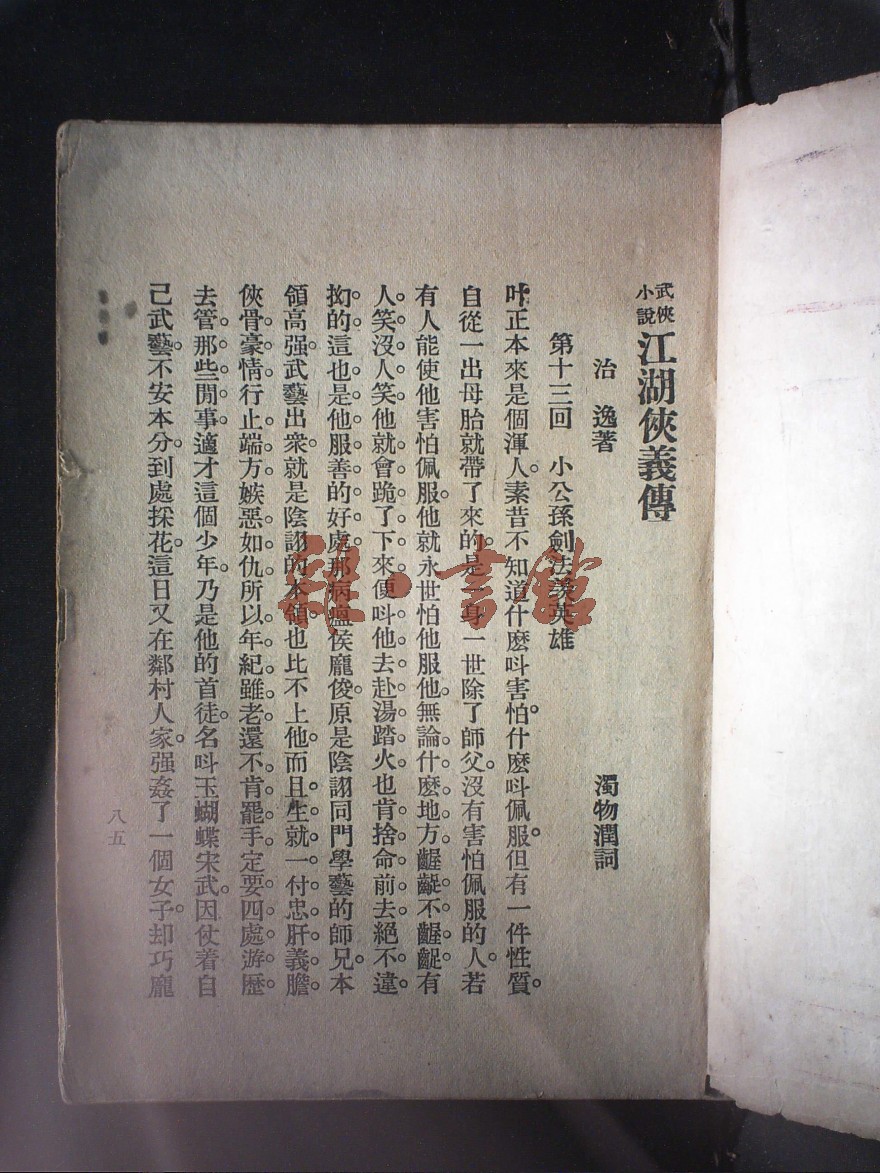 武俠小說 江湖俠義傳
治逸著　濁物潤詞
第十三回　小公孫劍法義英雄
叶正本來是個渾人。素昔不知道什麽叫害怕。什麽叫佩服。但有一件性質。
自從一出母胎就帶了來的。是一身一世除了師父。沒有害怕佩服的人。若
有人能使他害怕佩服。他就永世怕他服他。無論什麽地方。齷齪不齷齪。有
人笑沒人笑。他就會跪了下來。便叫他去赴湯踏火。也肯捨命前去。絕不違
拗的。這也是他服善的好處。那病瘟侯龐俊。原是陰詡同門學藝的師兄。本
領高强。武藝出衆。就是陰詡的本領。也比不上他。而且生就一付忠肝義膽。
俠骨豪情。行止端方。嫉惡如仇。所以年紀雖老。還不肯罷手。定要四處游歷。
去管那些閒事。適才這個少年。乃是他的首徒。名叫玉蝴蝶宋武。因仗着自
己武藝。不安本分。到處採花。這日又在鄰村人家。强姦了一個女子。却巧龐
八五
書館